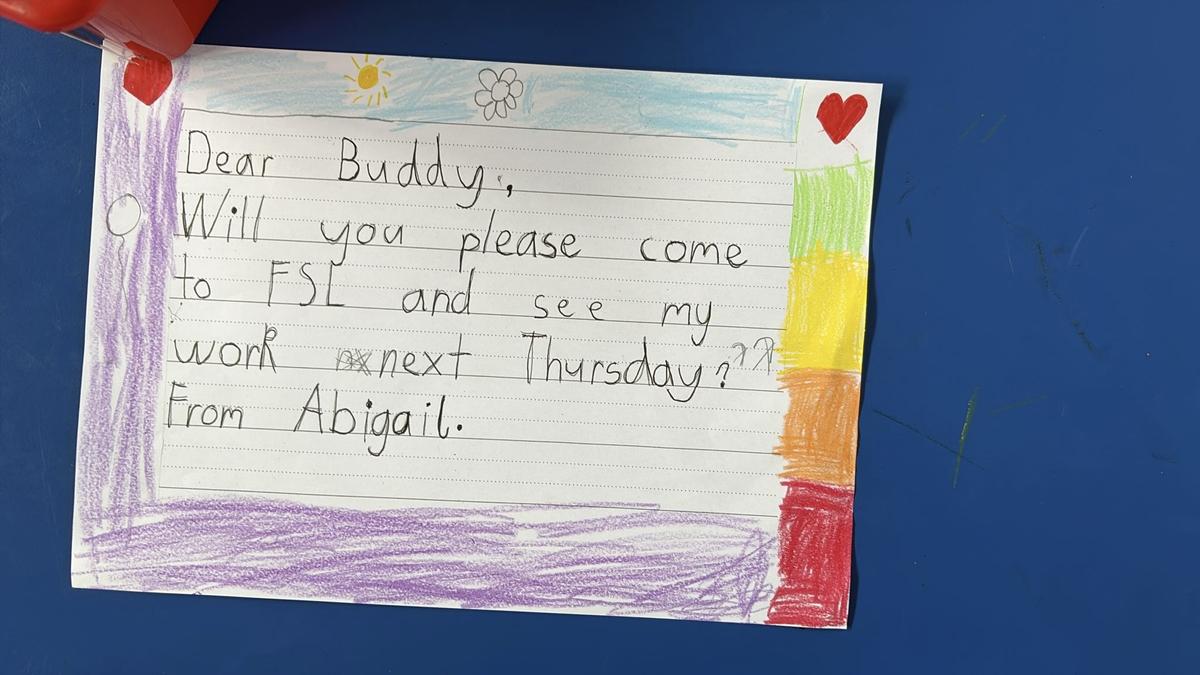 Dear Buddy,
Will you please come
to FSL and see my
work next Thursday???
From Abigail.